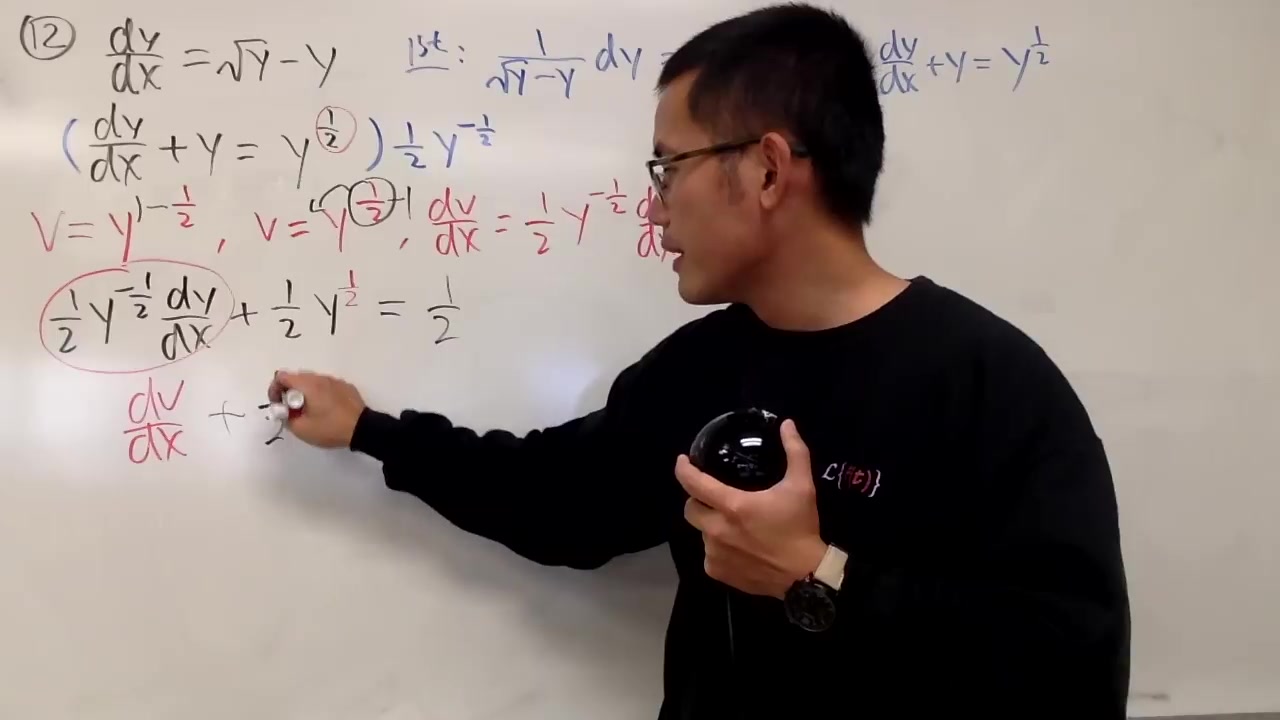 ⑫ dy/dx = √y - y 1st: 1/(√y - y) dy = dy/dx + y = y^(1/2)
(dy/dx + y = y^(1/2)) 1/2 y^(-1/2)
v = y^(1-1/2), v = y^(1/2) -1, dv/dx = 1/2 y^(-1/2)
1/2 y^(-1/2) dy/dx + 1/2 y^(1/2) = 1/2
dv/dx + 1/2